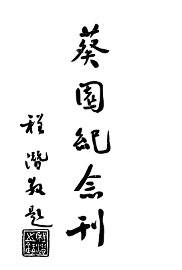 葵園紀念刊
程潛敬題